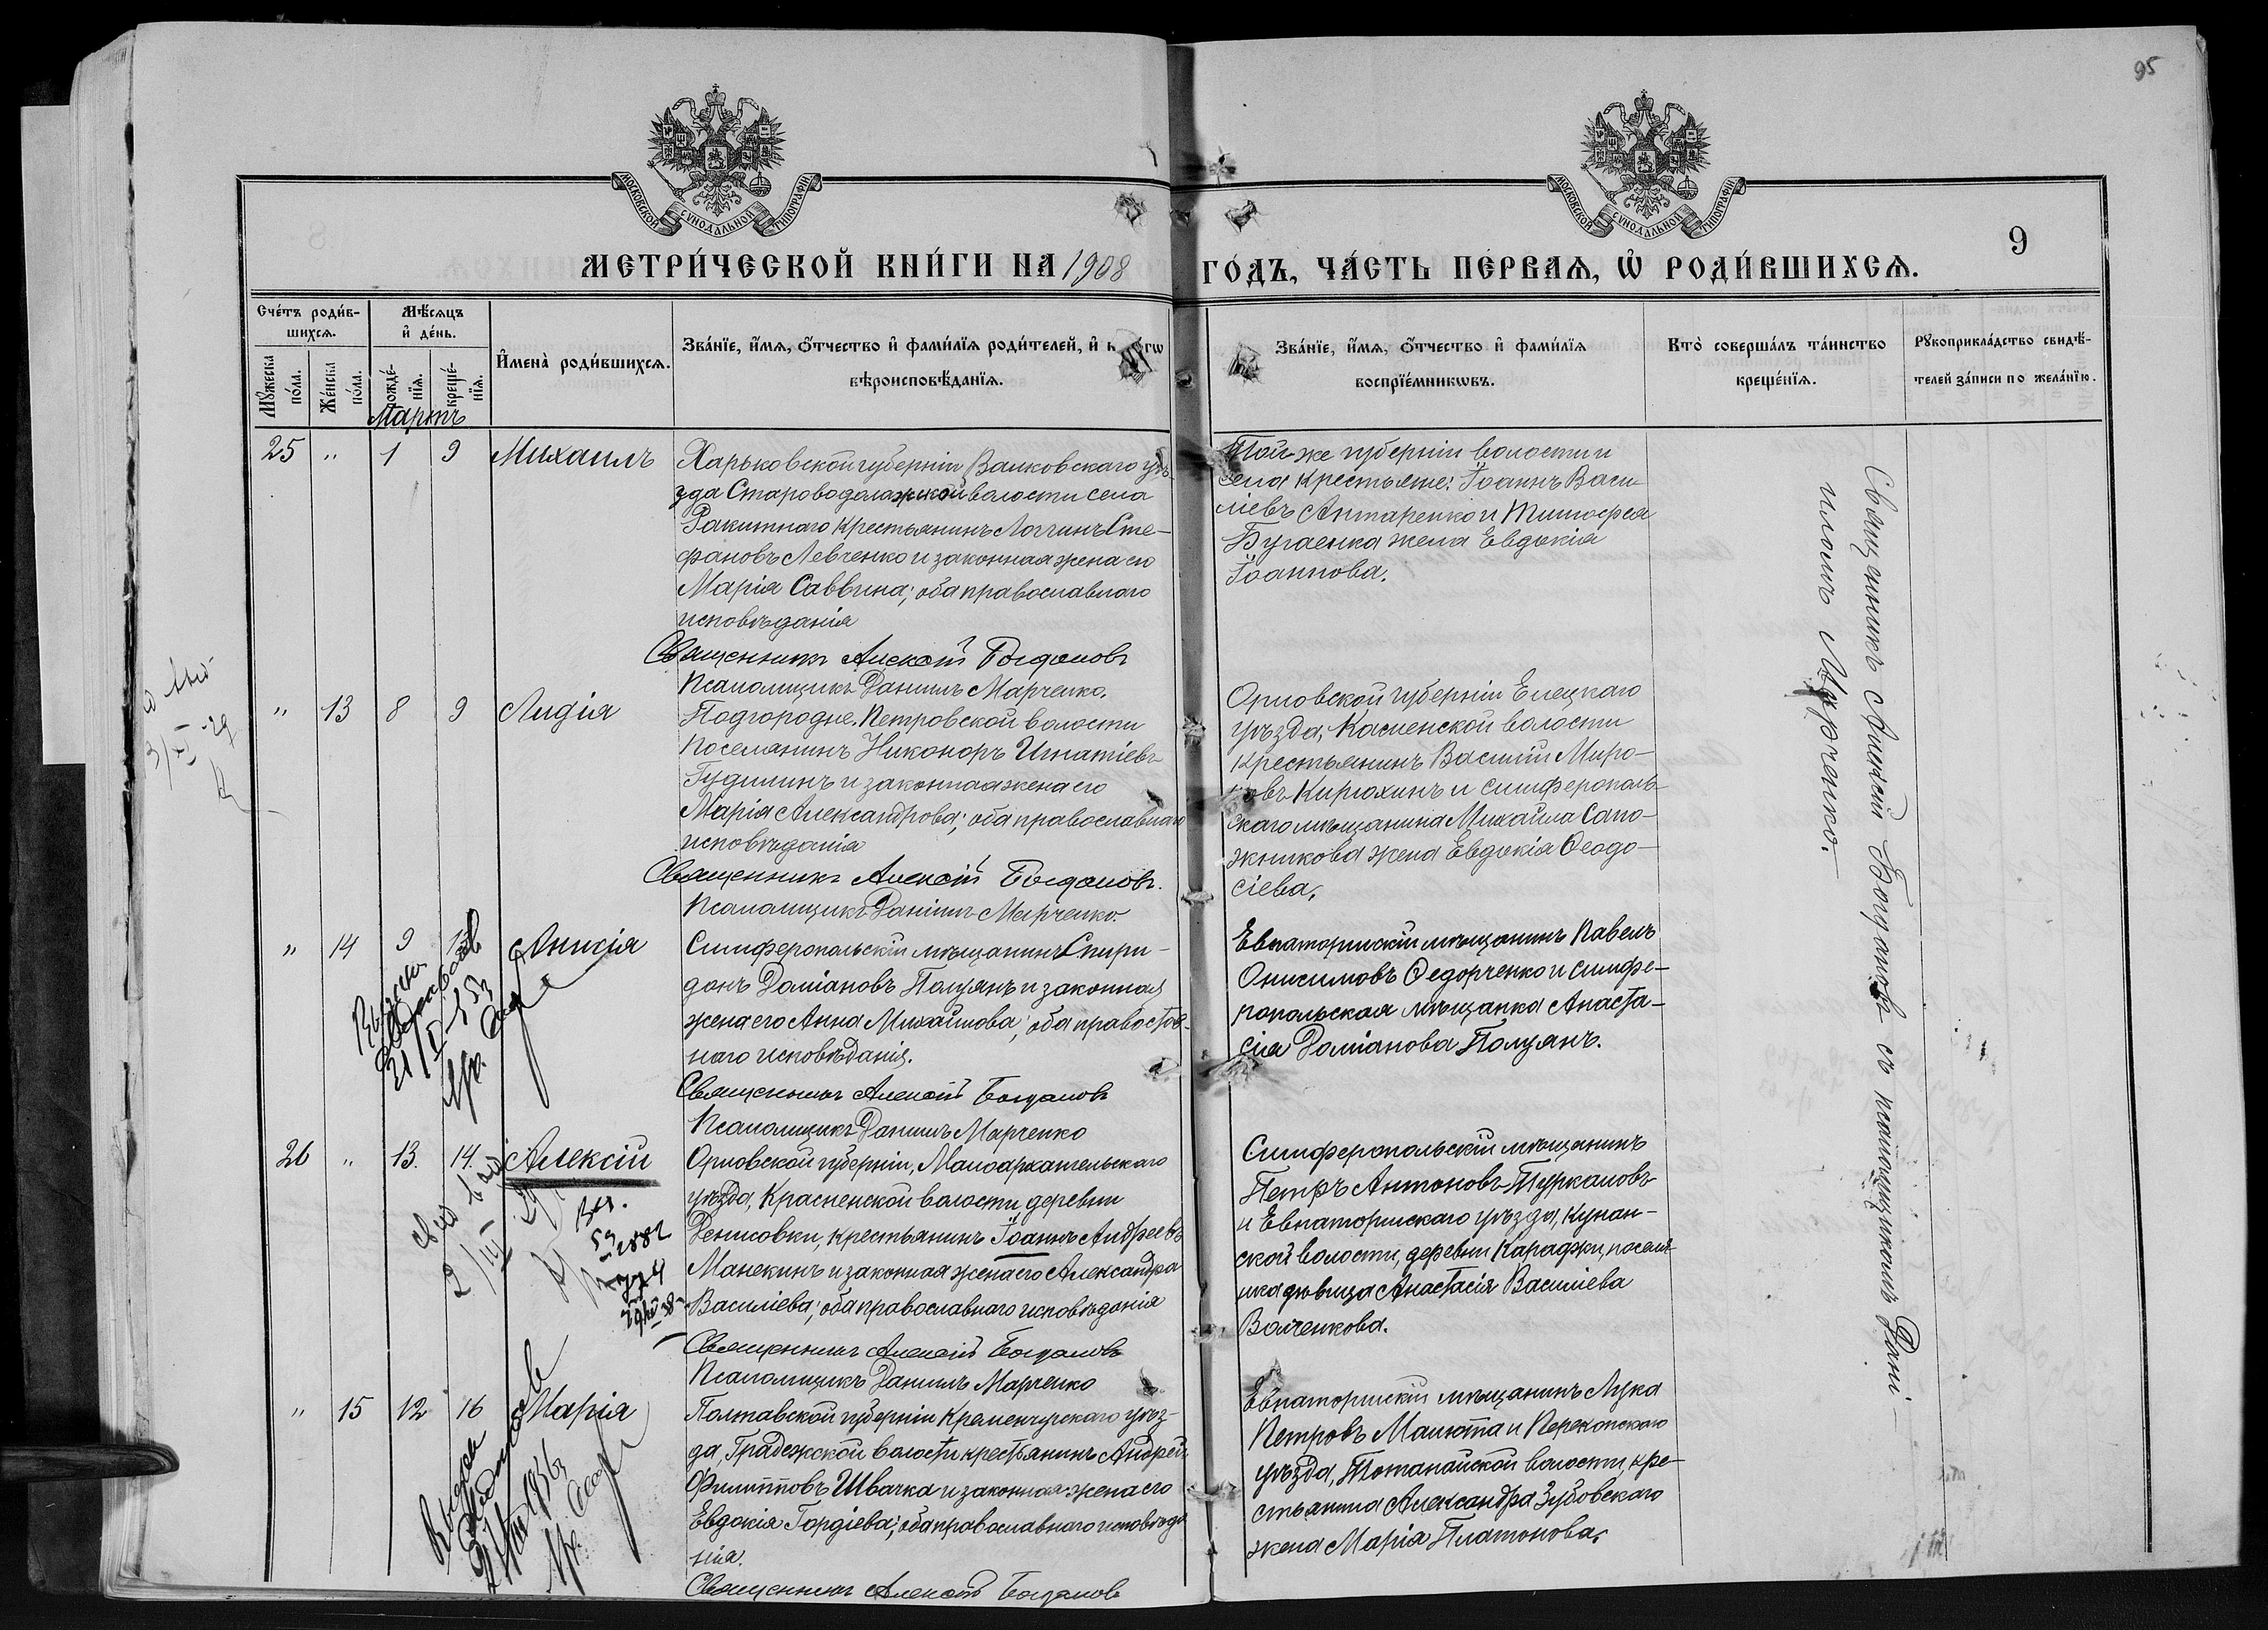 95
МОСКОВСКОЙ СѴНОДАЛЬНОЙ ТИПОГРАФІИ
МОСКОВСКОЙ СѴНОДАЛЬНОЙ ТИПОГРАФІИ
МЕТРИ́ЧЕСКОЙ КНИ́ГИ НА 1908
ГО́ДЪ, ЧА́СТЬ ПЕ́РВАѦ, Ѽ РОДИ́ВШИХСѦ.
9
Сче́тъ роди́в-
шихсѧ.
Мꙋ́жеска
по́ла.
Же́нска
по́ла.
Мѣ́сѧцъ
и҆ де́нь.
рожде́-
нїѧ.
креще́-
нїѧ.
Мартъ
И҆мена̀ роди́вшихсѧ.
Зва́нїе, и҆́мѧ, ѻ҆́тчество и҆ фами́лїѧ роди́телей, и҆
вѣроисповѣ́данїѧ.
Зва́нїе, и҆́мѧ, ѻ҆́тчество и҆ фами́лїѧ
воспрїе́мникѡвъ.
Кто̀ соверша́лъ та́инство
креще́нїѧ.
Рꙋкоприкла́дство свидѣ́-
телей за́писи по жела́нїю.
25 " 1 9 Михаилъ
Харьковской губерніи Валковскаго уѣ-
зда Староводолажской волости села
Ракитнаго крестьянинъ Логгинъ Сте-
фановъ Левченко и законная жена его
Марія Саввина; оба православнаго
исповѣданія
Священникъ Алексій Богдановъ
Псаломщикъ Даніилъ Марченко.
Той-же губерніи волости и
села крестьяне: Іоаннъ Васи-
ліевъ Антаренко и Тимофея
Бугаенка жена Евдокія
Іоаннова.
" 13 8 9 Лидія
Подгородне-Петровской волости
поселянинъ Никоноръ Игнатіевъ
Гудилинъ и законная жена его
Марія Александрова; оба православнаго
исповѣданія
Священникъ Алексій Богдановъ.
Псаломщикъ Даніилъ Марченко.
Орловской губерніи Елецкаго
уѣзда, Касненской волости
крестьянинъ Василій Миро-
новъ Кирюхинъ и симферополь-
скаго мѣщанина Михаила Сапо-
жникова жена Евдокія Ѳеодо-
сіева.
" 14 9 Анисія
Симферопольскій мѣщанинъ Спири-
донъ Доміановъ Полуянъ и законная
жена его Анна Михайлова; оба православ-
наго исповѣданія.
Священникъ Алексій Богдановъ
Псаломщикъ Даніилъ Марченко
Евпаторійскій мѣщанинъ Павелъ
Онисимовъ Ѳедорченко и симфе-
ропольская мѣщанка Анаста-
сія Доміанова Полуянъ.
26 " 13. 14. Алексій
Орловской губерніи, Малоархангельскаго
уѣзда, Красненской волости деревни
Денисовки, крестьянинъ Іоаннъ Андреевъ
Манекинъ и законная жена его Александра
Василіева; оба православнаго исповѣданія
Священникъ Алексій Богдановъ
Псаломщикъ Даніилъ Марченко
Симферопольскій мѣщанинъ
Петръ Антоновъ Туркаловъ
и Евпаторійскаго уѣзда, Кунан-
ской волости, деревни Караджи, поселя-
нка дѣвица Анастасія Василіева
Волченкова.
" 15 12 16 Марія
Полтавской губерніи Кременчугскаго уѣз-
да, Градежской волости крестьянинъ Андрей
Филипповъ Швачка и законная жена его
Евдокія Гордіева; оба православнаго исповѣда-
нія.
Священникъ Алексій Богдановъ
Евпаторійскій мѣщанинъ Лука
Петровъ Малюта и Перекопскаго
уѣзда, Тотанайской волости, кре-
стьянина Александра Зубовскаго
жена Марія Платонова.
Священникъ Алексій Богдановъ съ псаломщикомъ Дані-
иломъ Марченко.